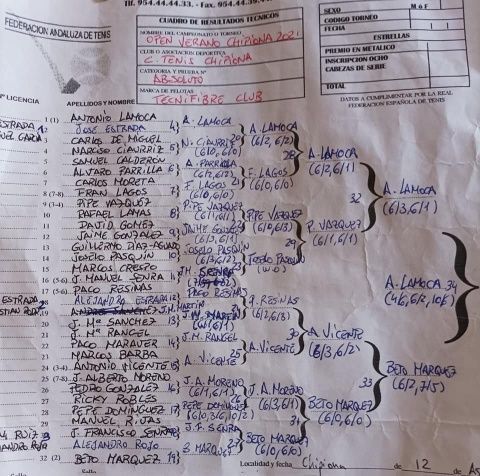 Tlf. 954.44.44.33. - Fax. 954.44.39
FEDERACION ANDALUZA DE TENIS
CUADRO DE RESULTADOS TECNICOS
NOMBRE DEL CAMPEONATO o TORNEO:
OPEN VERANO CHIPIONA 2021
CLUB O ASOCIACION DEPORTIVA
C. TENIS CHIPIONA
CATEGORIA Y PRUEBA Nº
ABSOLUTO
MARCA DE PELOTAS
TECNIFIBRE CLUB
SEXO M ó F
CODIGO TORNEO
FECHA
ESTRELLAS
PREMIO EN METALICO
INSCRIPCION OCHO
CABEZAS DE SERIE
TOTAL
DATOS A CUMPLIMENTAR POR LA REAL
FEDERACION ESPAÑOLA DE TENIS
Nº LICENCIA APELLIDOS Y NOMBRE
1 (1) ANTONIO LAMOCA
2 JOSE ESTRADA
3 CARLOS DE MIGUEL
4 NARCISO CIAURRIZ
5 SAMUEL CALDERÓN
6 ALVARO PARRILLA
7 CARLOS MORETA
8 (7-8) FRAN LAGOS
9 (3-4) PIPE VAZQUEZ
10 RAFAEL LAMAS
11 DAVID GOMEZ
12 JAIME GONZALEZ
13 GUILLERMO DIAZ-AGUADO
14 JOSELO PASQUÍN
15 MARCOS CRESPO
16 (5-6) J. MANUEL SENRA
17 (5-6) PACO RESINAS
ALEJANDRO ESTRADA
J. Mª SANCHEZ
J. Mª RANGEL
PACO MARAVER
23 MARCOS BARBA
24 (3-4) ANTONIO VICENTE
25 (7-8) J. ALBERTO MORENO
26 PEDRO GONZALEZ
27 RICKY ROBLES
28 PEPE DOMINGUEZ
29 MANUEL RIJAS
30 J. FRANCISCO SENRA
31 ALEJANDRO ROJO
32 (2) BETO MARQUEZ
A. LAMOCA
N. CIAURRIZ
(6/0, 6/0)
A. PARRILLA
(6/2, 6/2)
F. LAGOS
(6/0, 6/0)
PIPE VAZQUEZ
(6/1, 6/1)
JAIME GONZALEZ
(6/3, 6/1)
JOSELO PASQUIN
(6/3, 6/2)
J.M. SENRA
PACO RESINAS
J.M. MARTIN
J.M. RANGEL
A. VICENTE
J.A. MORENO
(6/1, 6/1)
PEPE DOMINGUEZ
(6/0, 3/6, 6/2)
J.F. SENRA
B. MARQUEZ
A. LAMOCA
(6/2, 6/2)
F. LAGOS
(6/0, 6/0)
PIPE VAZQUEZ
JOSELO PASQUIN
(W.O)
P. RESINAS
A. VICENTE
J.A. MORENO
(6/3, 6/1)
BETO MARQUEZ
(6/0, 6/0)
A. LAMOCA
(6/2, 6/1)
P. VAZQUEZ
(6/1, 6/1)
A VICENTE
(6/3, 6/2)
BETO MARQUEZ
(6/0, 6/0)
A. LAMOCA
(6/3, 6/1)
BETO MARQUEZ
(6/2, 7/5)
A. LAMOCA
(4/6, 6/2, 10/6)
Localidad y fecha Chipiona de 12 de